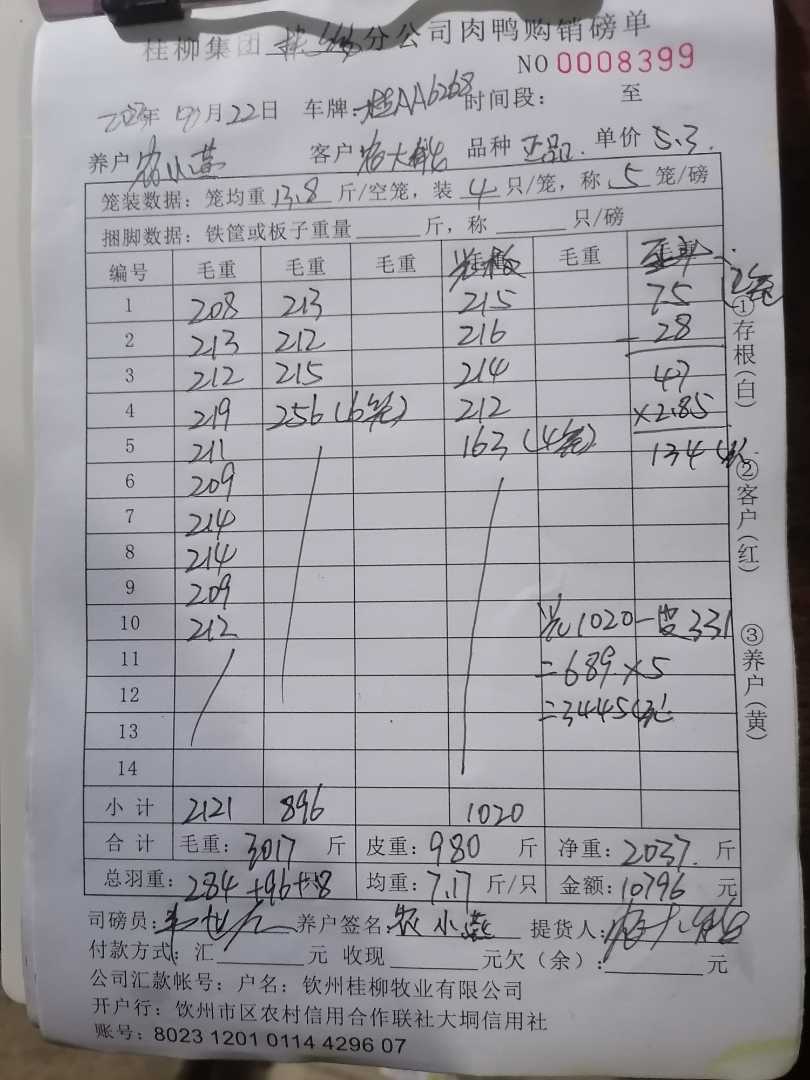 桂柳集团 分公司肉鸭购销磅单
NO 0008399
年 月22日 车牌: 桂AA6268 时间段: 至
养户 农小燕 客户 品种 正品 单价 5.3
笼装数据: 笼均重 13.8 斤/空笼, 装 4 只/笼, 称 5 笼/磅
捆脚数据: 铁筐或板子重量 斤, 称 只/磅
编号 毛重 毛重 毛重 毛重
1 208 213 215 75
2 213 212 216 -28
3 212 215 214 47
4 219 256 (6笼) 212 ×2.85
5 211 163 (4笼) 134
6 209
7 214
8 214
9 209
10 212 1020-皮331
11 =689×5
12 =3445
13
14
小计 2121 896 1020
合计 毛重: 3017 斤 皮重: 980 斤 净重: 2037 斤
总羽重: 284+96+8 均重: 7.17 斤/只 金额: 10796 元
司磅员: 养户签名: 农小燕 提货人:
付款方式: 汇 元 收现 元欠(余): 元
公司汇款帐号: 户名: 钦州桂柳牧业有限公司
开户行: 钦州市区农村信用合作联社大垌信用社
账号: 8023 1201 0114 4296 07
①存根(白) ②客户(红) ③养户(黄)